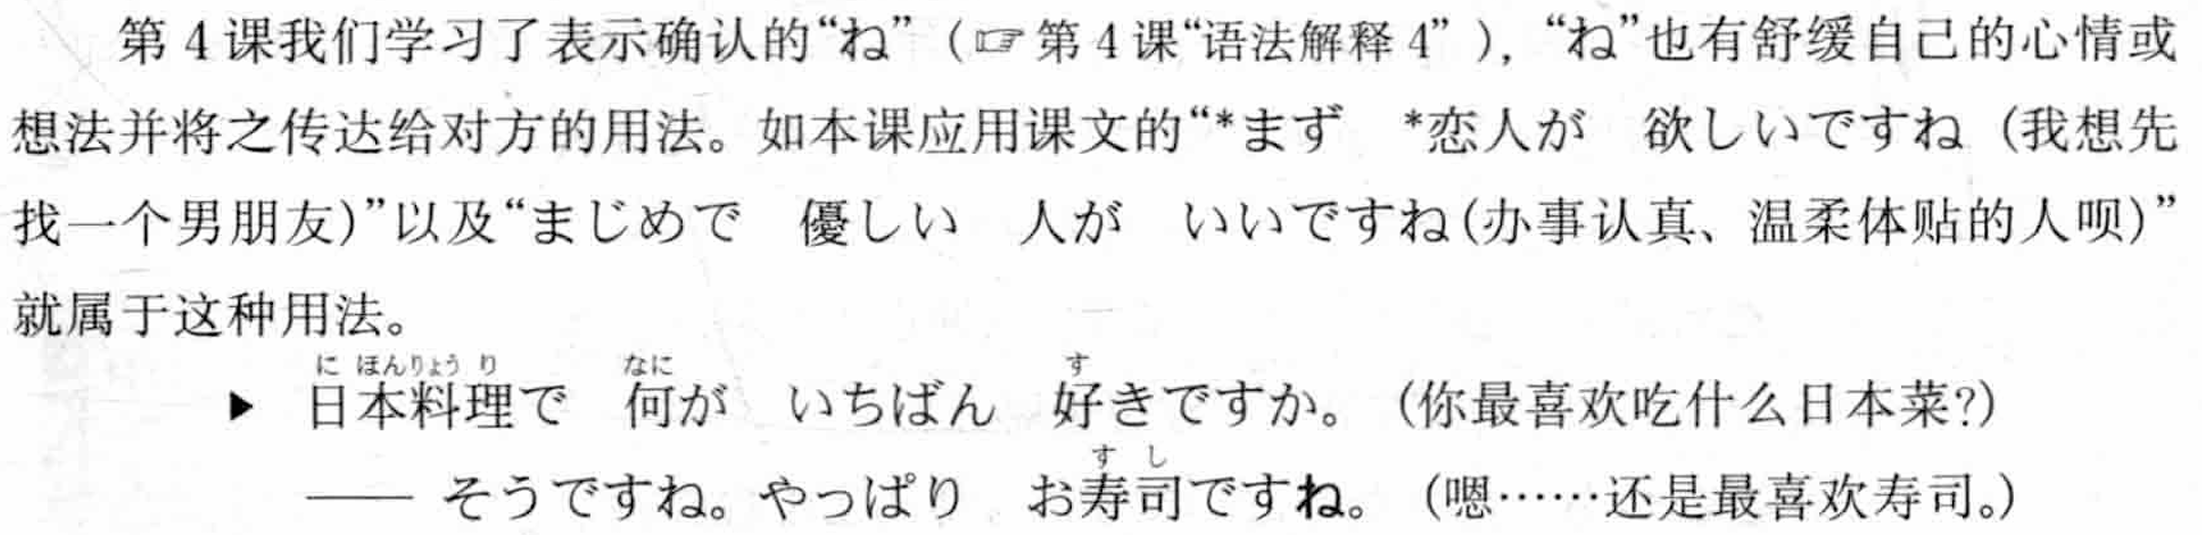 第4课我们学习了表示确认的“ね”（☞第4课“语法解释4”），“ね”也有舒缓自己的心情或
想法并将之传达给对方的用法。如本课应用课文的“*まず　*恋人が　欲しいですね（我想先
找一个男朋友）”以及“まじめで　優しい　人が　いいですね（办事认真、温柔体贴的人呗）”
就属于这种用法。
に ほんりょう り　なに　す
▶ 日本料理で　何が　いちばん　好きですか。（你最喜欢吃什么日本菜?）
す し
—— そうですね。やっぱり　お寿司ですね。（嗯……还是最喜欢寿司。）